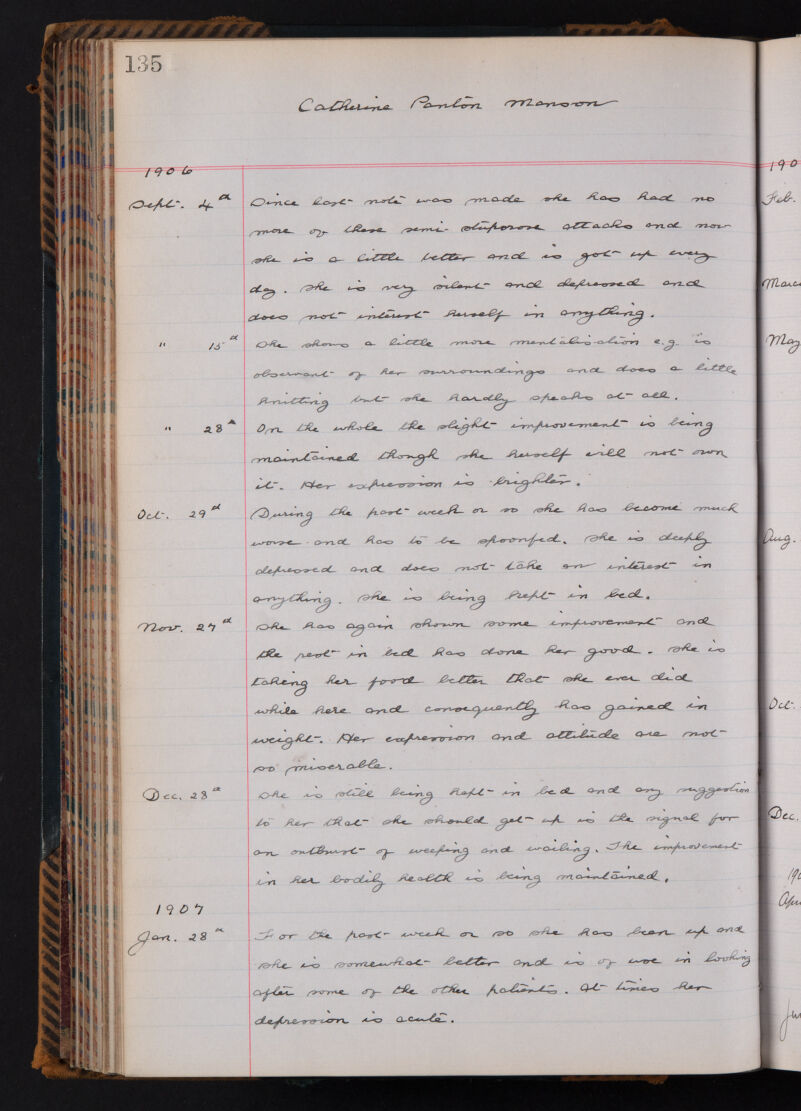 135
Catherine Panton Manson
1906
Sept. 4th Since last note was made she has had no
more of these semi-stuporose attacks and now
she is a little better and is got up every
day. She is very silent and depressed and
does not interest herself in anything.
" 15th She shows a little more mentalisation e.g. is
observant of her surroundings and does a little
knitting but she hardly speaks at all.
" 28th On the whole the slight improvement is being
maintained though she herself will not own
it. Her expression is brighter.
Oct. 29th During the past week or so she has become much
worse and has to be spoonfed. She is deeply
depressed and does not take an interest in
anything. She is being kept in bed.
Nov. 27th She has again shown some improvement and
the rest in bed has done her good. She is
taking her food better that she ever did
while here and consequently has gained in
weight. Her expression and attitude are not
so miserable.
Dec. 28th She is still being kept in bed and any suggestion
to her that she should get up is the signal for
an outburst of weeping and wailing. The improvement
in her bodily health is being maintained.
1907
Jan. 28th For the past week or so she has been up and
she is somewhat better and is of use in looking
after some of the other patients. At times her
depression is acute.
190
Feb.
Marc
May
Aug.
Oct.
Dec.